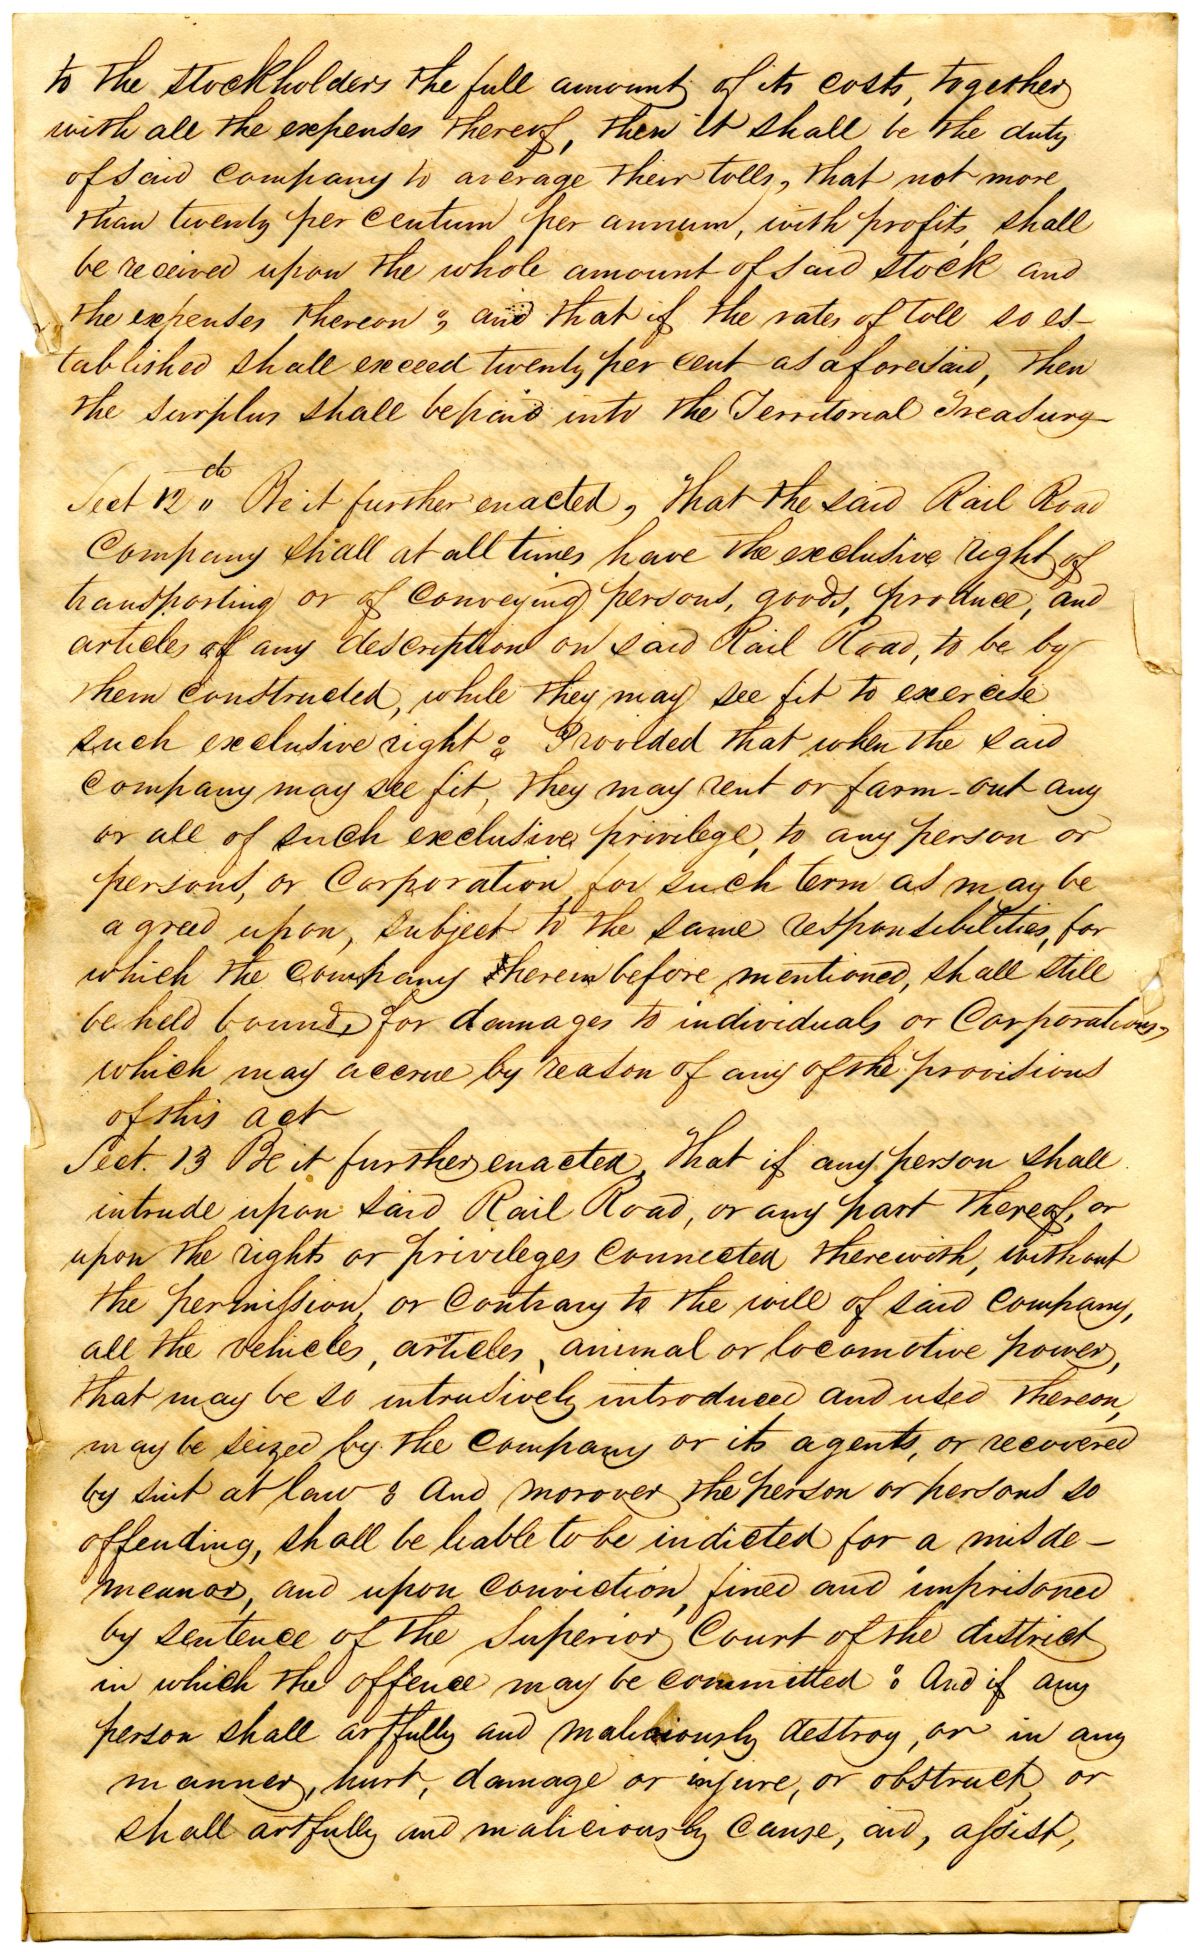 to the stockholders the full amount of its costs, together
with all the expenses thereof, then it shall be the duty
of said company to average their tolls, that not more
than twenty per centum per annum, with profits, shall
be received upon the whole amount of said stock and
the expenses thereon; and that if the rates of toll so es-
tablished shall exceed twenty per cent as aforesaid, then
the surplus shall be paid into the Territorial Treasury
Sect 12 Be it further enacted, That the said Rail Road
Company shall at all times have the exclusive right of
transporting or of conveying persons, goods, produce, and
articles of any description on said Rail Road, to be by
them constructed, while they may see fit to exercise
such exclusive right: Provided that when the said
company may see fit, they may rent or farm-out any
or all of such exclusive privilege, to any person or
persons, or Corporation for such term as may be
agreed upon, subject to the same responsibilities, for
which the company herein before mentioned, shall still
be held bound, for damages to individuals or Corporations,
which may accrue by reason of any of the provisions
of this act
Sect. 13 Be it further enacted, That if any person shall
intrude upon said Rail Road, or any part thereof, or
upon the rights or privileges connected therewith, without
the permission, or contrary to the will of said company,
all the vehicles, articles, animal or locomotive power,
that may be so intrusively introduced and used thereon,
may be seized by the company or its agents, or recovered
by suit at law; And morover the person or persons so
offending, shall be liable to be indicted for a misde-
meanor, and upon conviction, fined and imprisoned
by sentence of the Superior Court of the district
in which the offence may be committed: And if any
person shall artfully and maliciously destroy, or in any
manner, hurt, damage or injure, or obstruct, or
shall artfully and maliciously cause, aid, assist,